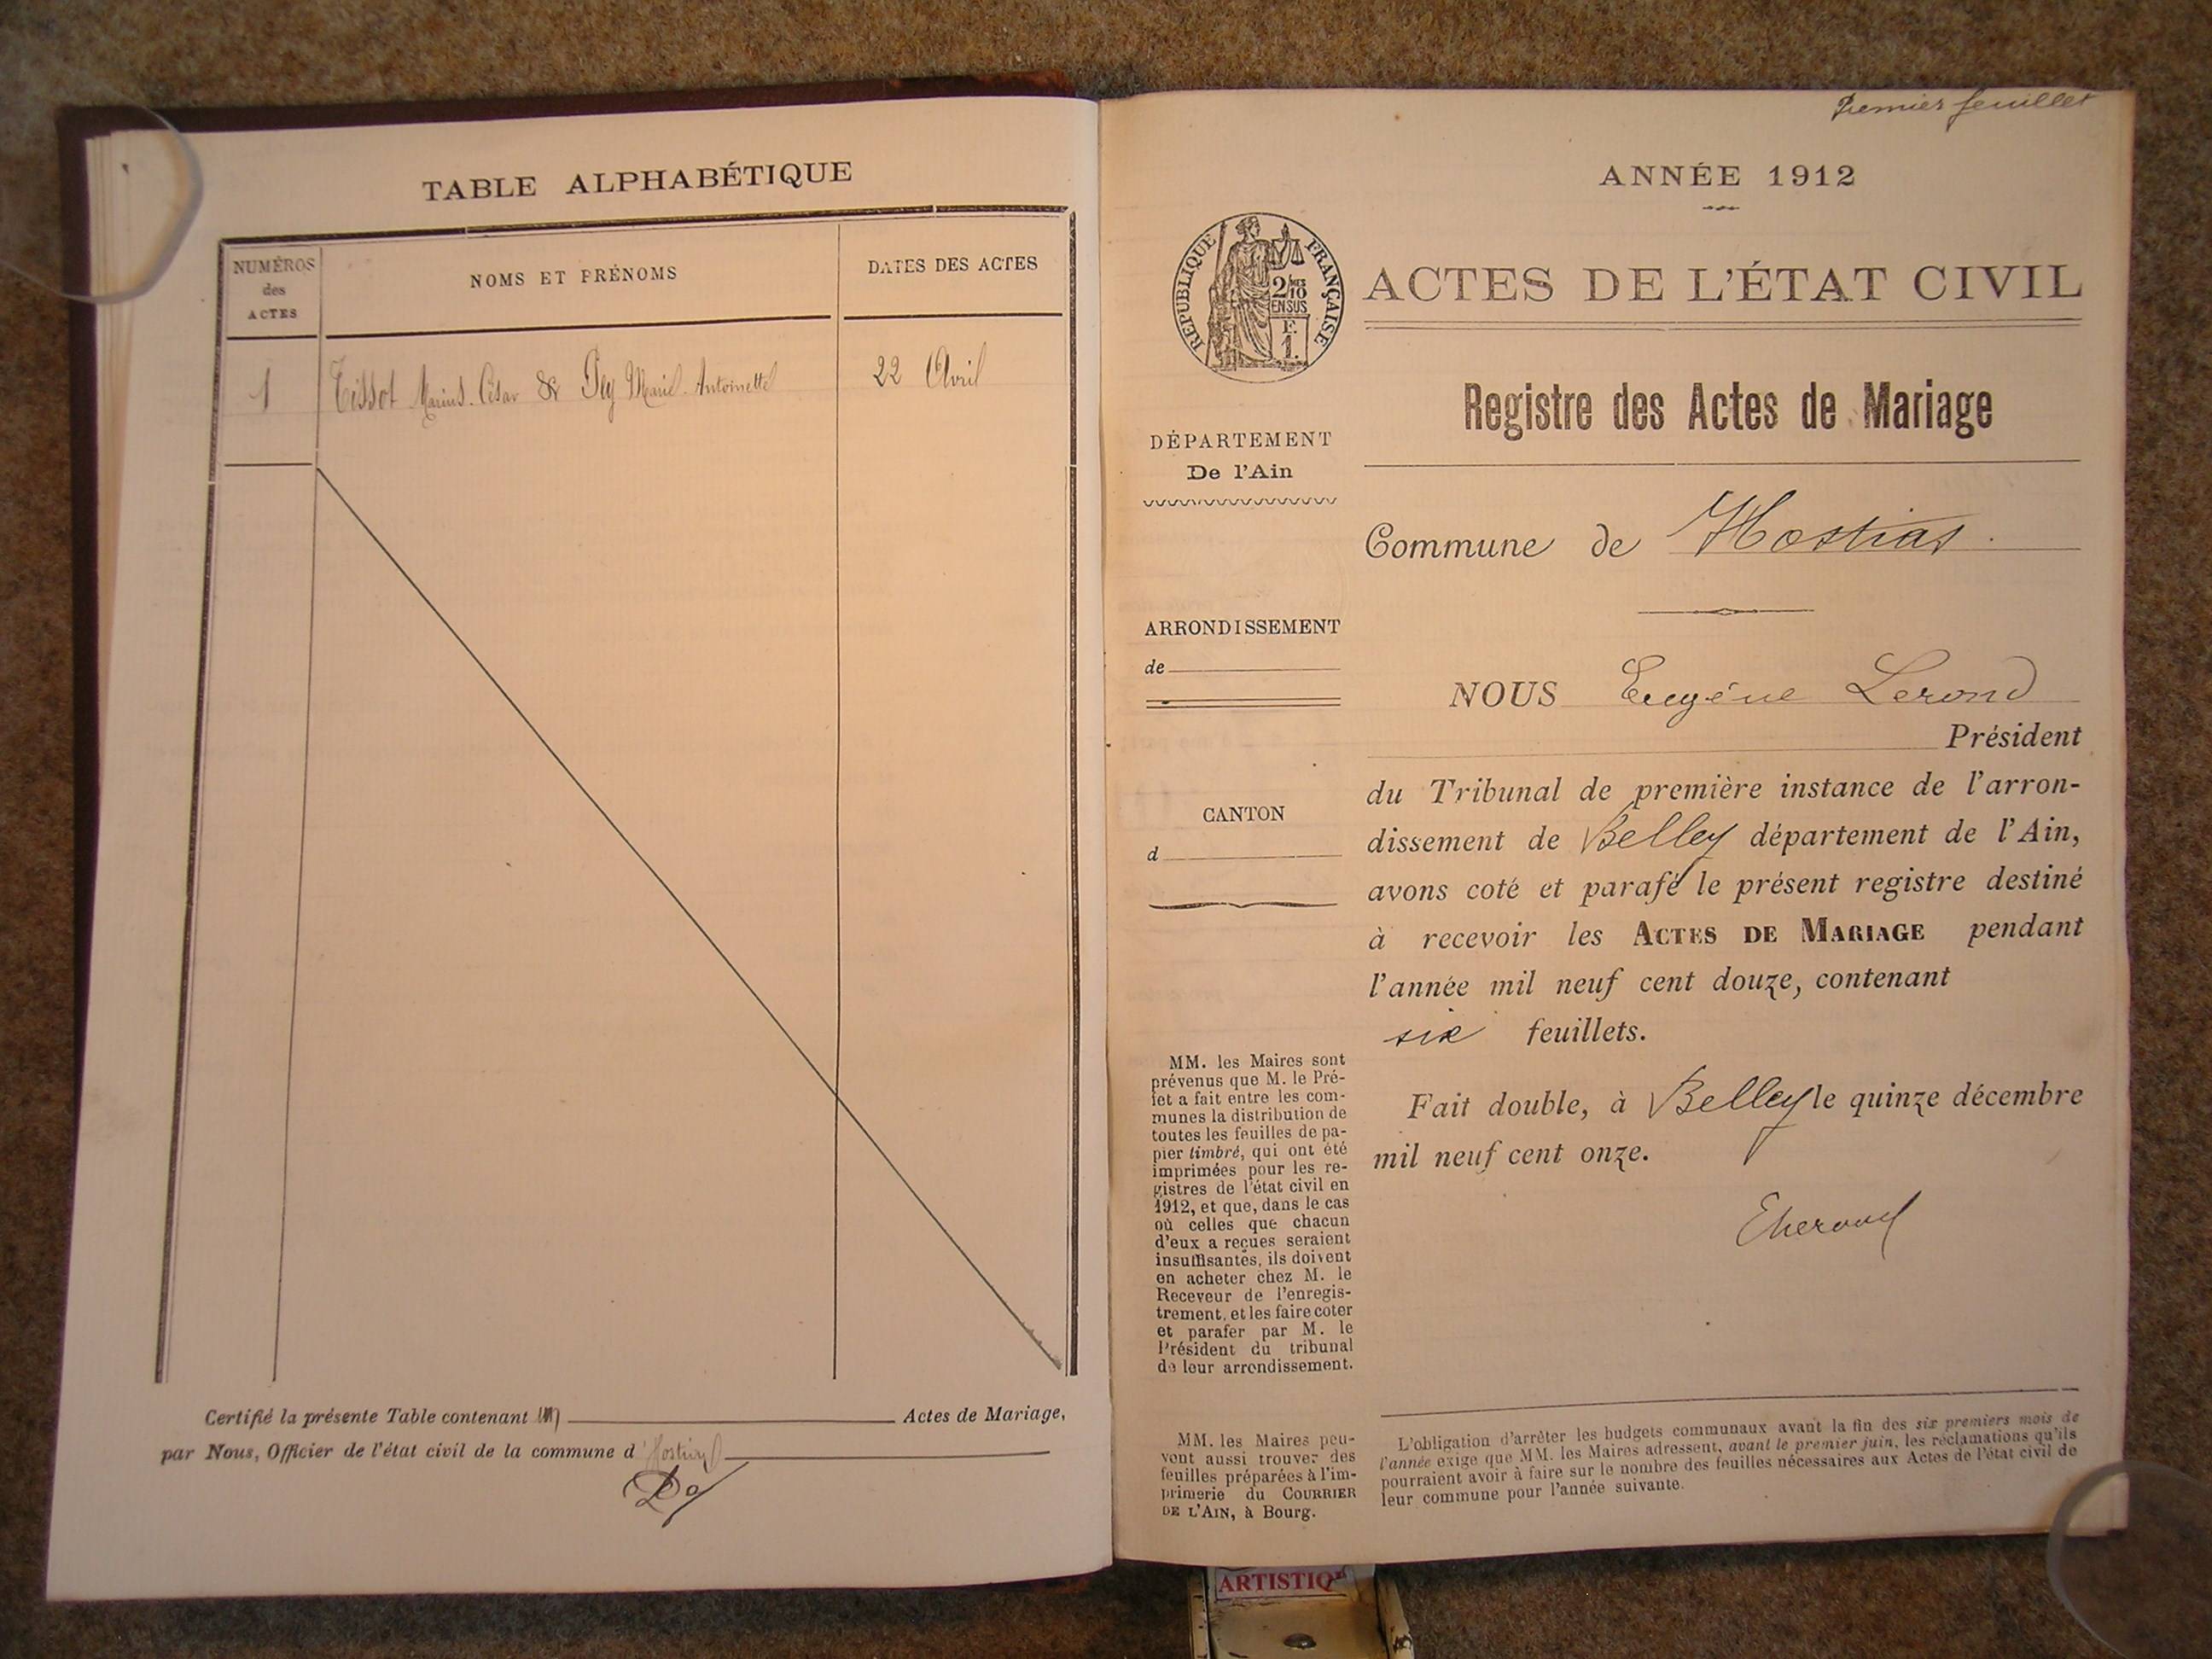 TABLE ALPHABÉTIQUE
NUMÉROS
des
ACTES
NOMS ET PRÉNOMS
DATES DES ACTES
1 Tissot Marius César & Pey Marie Antoinette 22 Avril
Certifié la présente Table contenant un Actes de Mariage,
par Nous, Officier de l'état civil de la commune d'
Premier feuillet
ANNÉE 1912
RÉPUBLIQUE FRANÇAISE
2/10
EN SUS
F.
1.
ACTES DE L'ÉTAT CIVIL
Registre des Actes de Mariage
DÉPARTEMENT
De l'Ain
Commune de Hostias.
ARRONDISSEMENT
de
CANTON
d
NOUS Eugéne Lerond
Président
du Tribunal de première instance de l'arron-
dissement de Belley département de l'Ain,
avons coté et parafé le présent registre destiné
à recevoir les ACTES DE MARIAGE pendant
l'année mil neuf cent douze, contenant
six feuillets.
Fait double, à Belley le quinze décembre
mil neuf cent onze.
MM. les Maires sont
prévenus que M. le Pré-
fet a fait entre les com-
munes la distribution de
toutes les feuilles de pa-
pier timbré, qui ont été
imprimées pour les re-
gistres de l'état civil en
1912, et que, dans le cas
où celles que chacun
d'eux a reçues seraient
insuffisantes, ils doivent
en acheter chez M. le
Receveur de l'enregis-
trement, et les faire coter
et parafer par M. le
Président du tribunal
de leur arrondissement.
MM. les Maires peu-
vent aussi trouver des
feuilles préparées à l'im-
primerie du COURRIER
DE L'AIN, à Bourg.
L'obligation d'arrêter les budgets communaux avant la fin des six premiers mois de
l'année exige que MM. les Maires adressent, avant le premier juin, les réclamations qu'ils
pourraient avoir à faire sur le nombre des feuilles nécessaires aux Actes de l'état civil de
leur commune pour l'année suivante.
ARTISTIQ